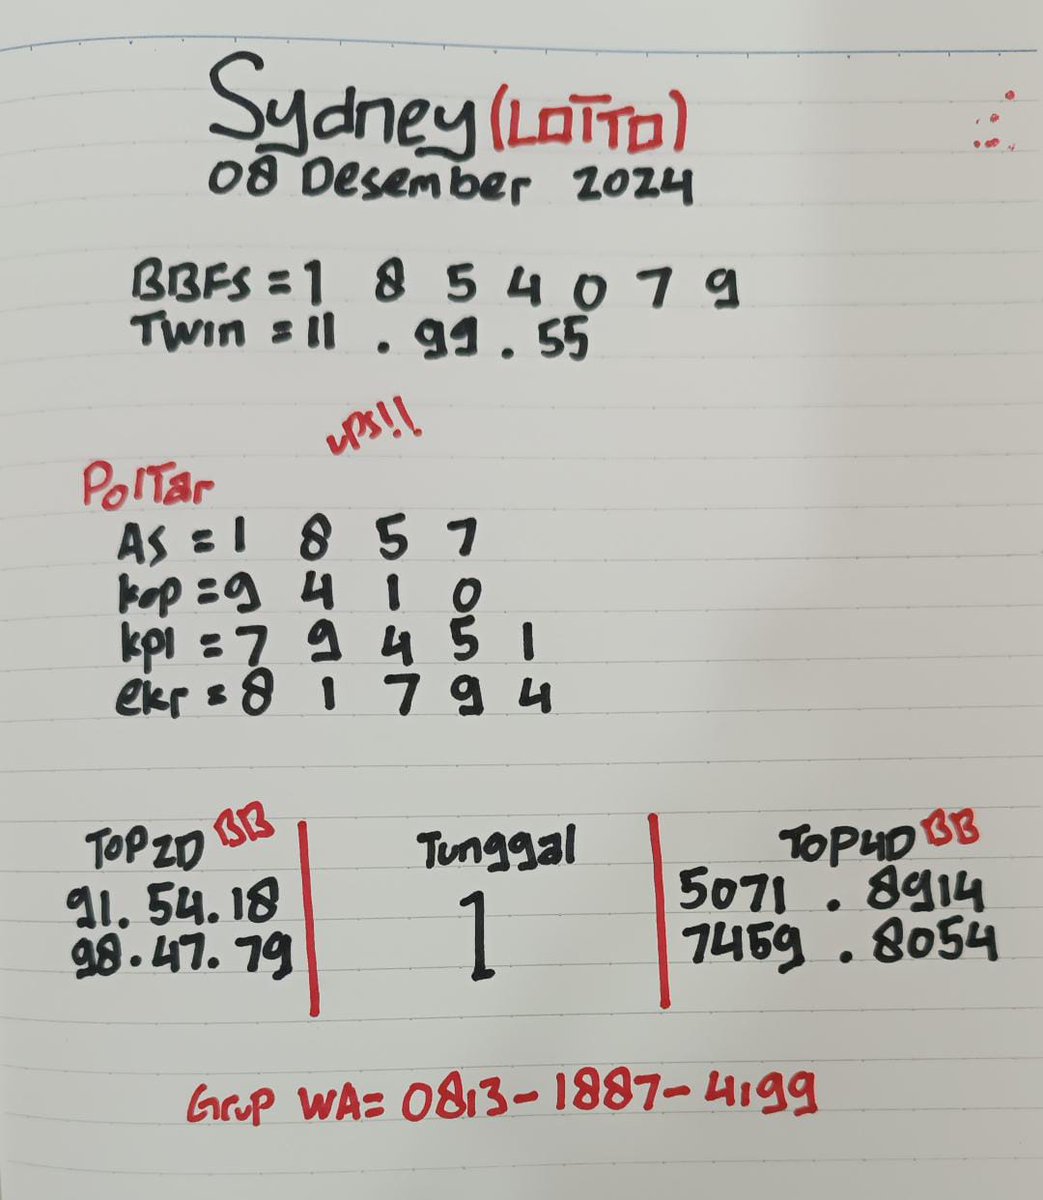 Sydney (LOTTO)
08 Desember 2024
BBFS = 1 8 5 4 0 7 9
Twin = 11 . 99 . 55
ups!!
PolTar
AS = 1 8 5 7
kop = 9 4 1 0
kpl = 7 9 4 5 1
ekr = 8 1 7 9 4
TOP2D BB
91. 54. 18
98. 47. 79
Tunggal
1
TOP4D BB
5071 . 8914
7459 . 8054
Grup WA= 0813-1887-4199